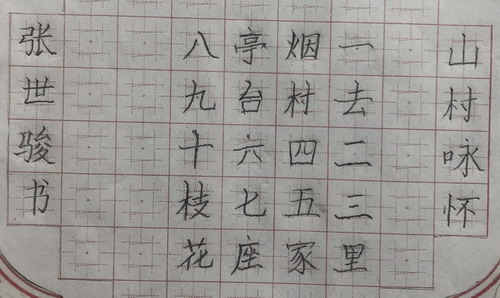 山村咏怀
一去二三里
烟村四五家
亭台六七座
八九十枝花
张世骏书